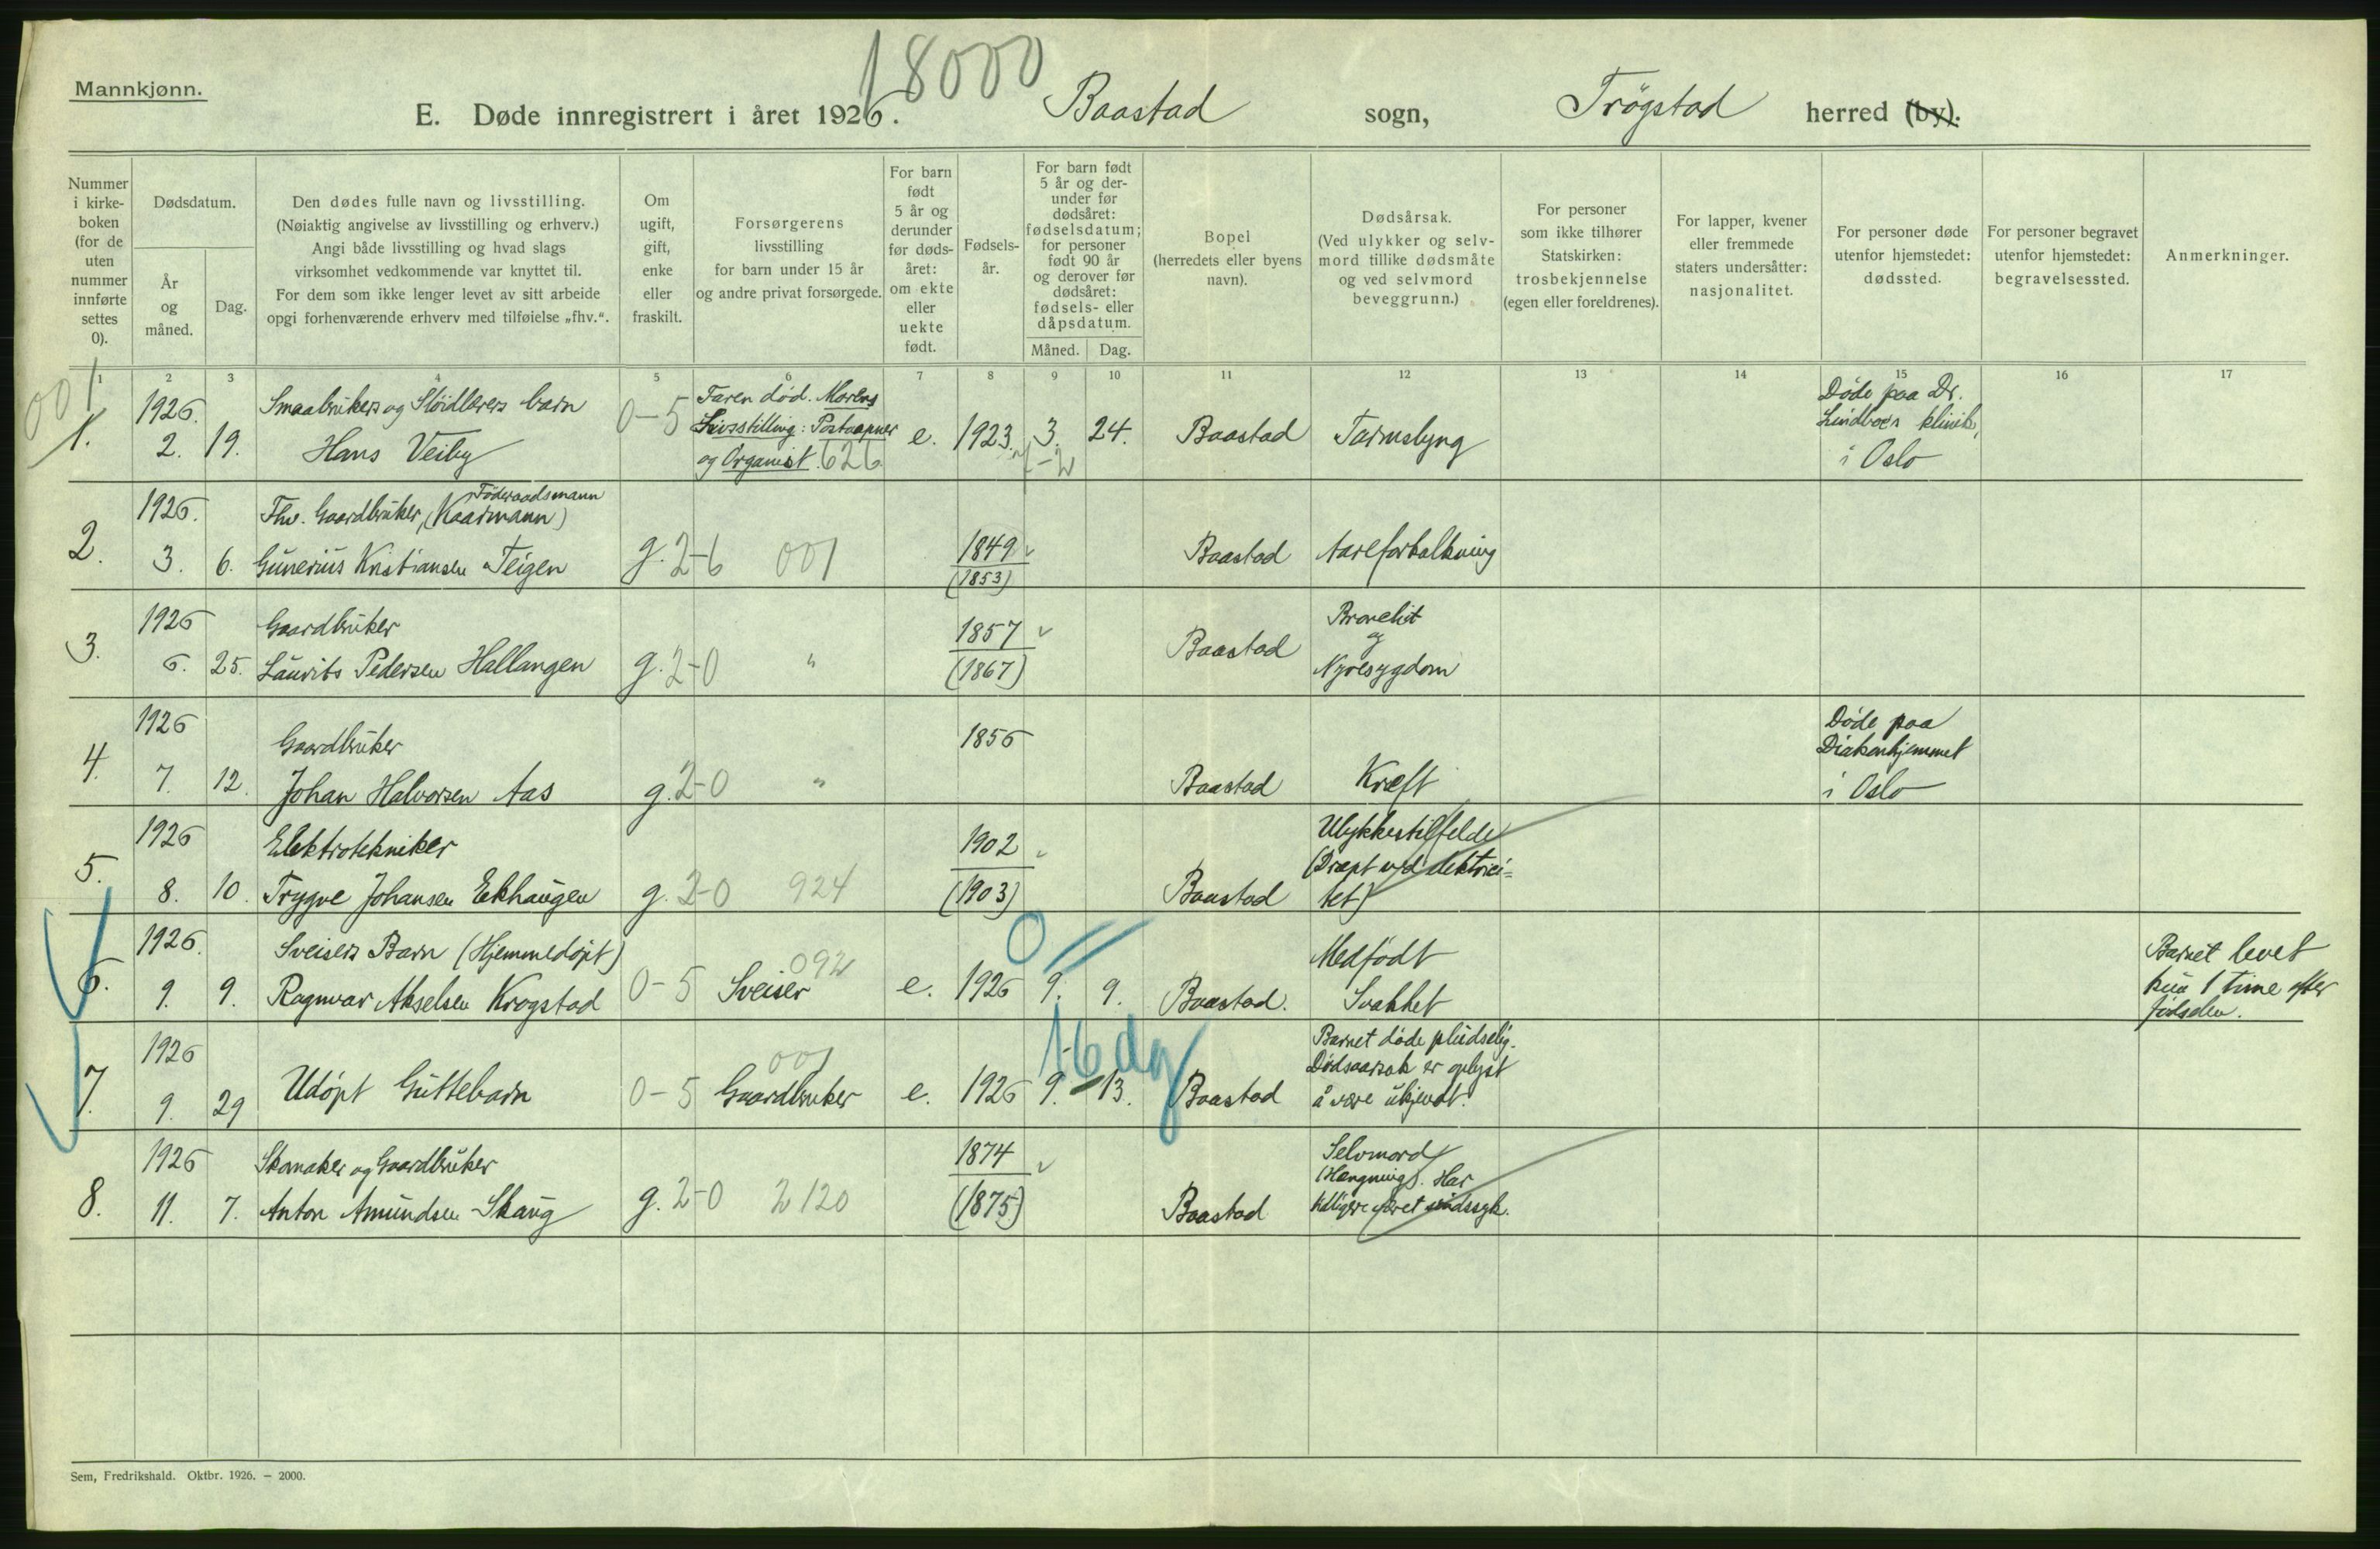 18000
Mannkjønn.
E. Døde innregistrert i året 1926. Baastad sogn, Trøgstad herred (by).
Nummer i kirkeboken (for de uten nummer innførte settes 0).
Dødsdatum.
År og måned.
Dag.
Den dødes fulle navn og livsstilling.
(Nøiaktig angivelse av livsstilling og erhverv.)
Angi både livsstilling og hvad slags
virksomhet vedkommende var knyttet til.
For dem som ikke lenger levet av sitt arbeide
opgi forhenværende erhverv med tilføielse „fhv.“.
Om ugift, gift, enke eller fraskilt.
Forsørgerens
livsstilling
for barn under 15 år
og andre privat forsørgede.
For barn født 5 år og derunder før dødsåret: om ekte eller uekte født.
Fødselsår.
For barn født 5 år og derunder før dødsåret: fødselsdatum; for personer født 90 år og derover før dødsåret: fødsels- eller dåpsdatum.
Måned. Dag.
Bopel
(herredets eller byens
navn).
Dødsårsak.
(Ved ulykker og selvmord tillike dødsmåte
og ved selvmord
beveggrunn.)
For personer
som ikke tilhører
Statskirken:
trosbekjennelse
(egen eller foreldrenes).
For lapper, kvener
eller fremmede
staters undersåtter:
nasjonalitet.
For personer døde
utenfor hjemstedet:
dødssted.
For personer begravet
utenfor hjemstedet:
begravelsessted.
Anmerkninger.
1 2 3 4 5 6 7 8 9 10 11 12 13 14 15 16 17
001
1. 1926. 2. 19.
Smaabrukers og Sløidlærers barn
Hans Veiby
0-5
Faren død. Morens
Livsstilling: Postaapner
og Organist. 626
e. 1923. 3. 24.
2-2
Baastad Tarmslyng
Døde paa Dr.
Lindboes klinik,
i Oslo
2. 1926. 3. 6.
Føderaadsmann
Fhv. Gaardbruker, (Kaarmann)
Gunerius Kristiansen Teigen
g. 2-6 001
1849
(1853)
Baastad Aareforkalkning
3. 1926 6. 25.
Gaardbruker
Laurits Pedersen Hallangen
g. 2-0 "
1857
(1867)
Baastad
og
Nyresygdom
4. 1926 7. 12.
Gaardbruker
Johan Halvorsen Aas
g. 2-0 "
1856
Baastad Kræft
Døde paa
Diakonhjemmet
i Oslo
5. 1926 8. 10.
Elektrotekniker
Trygve Johansen Ekhaugen
g. 2-0 924
1902
(1903)
Baastad
Ulykkestilfelde
(Dræpt ved elektrici=
tet)
6. 1926. 9. 9.
Sveisers Barn (Hjemmedøpt)
Ragnvar Akselsen Krogstad
0-5 092
Sveiser
e. 1926 9. 9.
0
Baastad.
Medfødt
Svakhet
Barnet levet
kun 1 time efter
fødselen.
7. 1926 9. 29
Udøpt Guttebarn
0-5 001
Gaardbruker
e. 1926 9. 13.
16 dg
Baastad
Barnet døde pludselig.
Dødsaarsak er oplyst
å være ukjendt.
8. 1926 11. 7.
Skomaker og Gaardbruker
Anton Amundsen Skaug
g. 2-0 2120
1874
(1875)
Baastad
Selvmord
(Hængning). Har
tidligere været sindssyk.
Sem, Fredrikshald. Oktbr. 1926. – 2000.